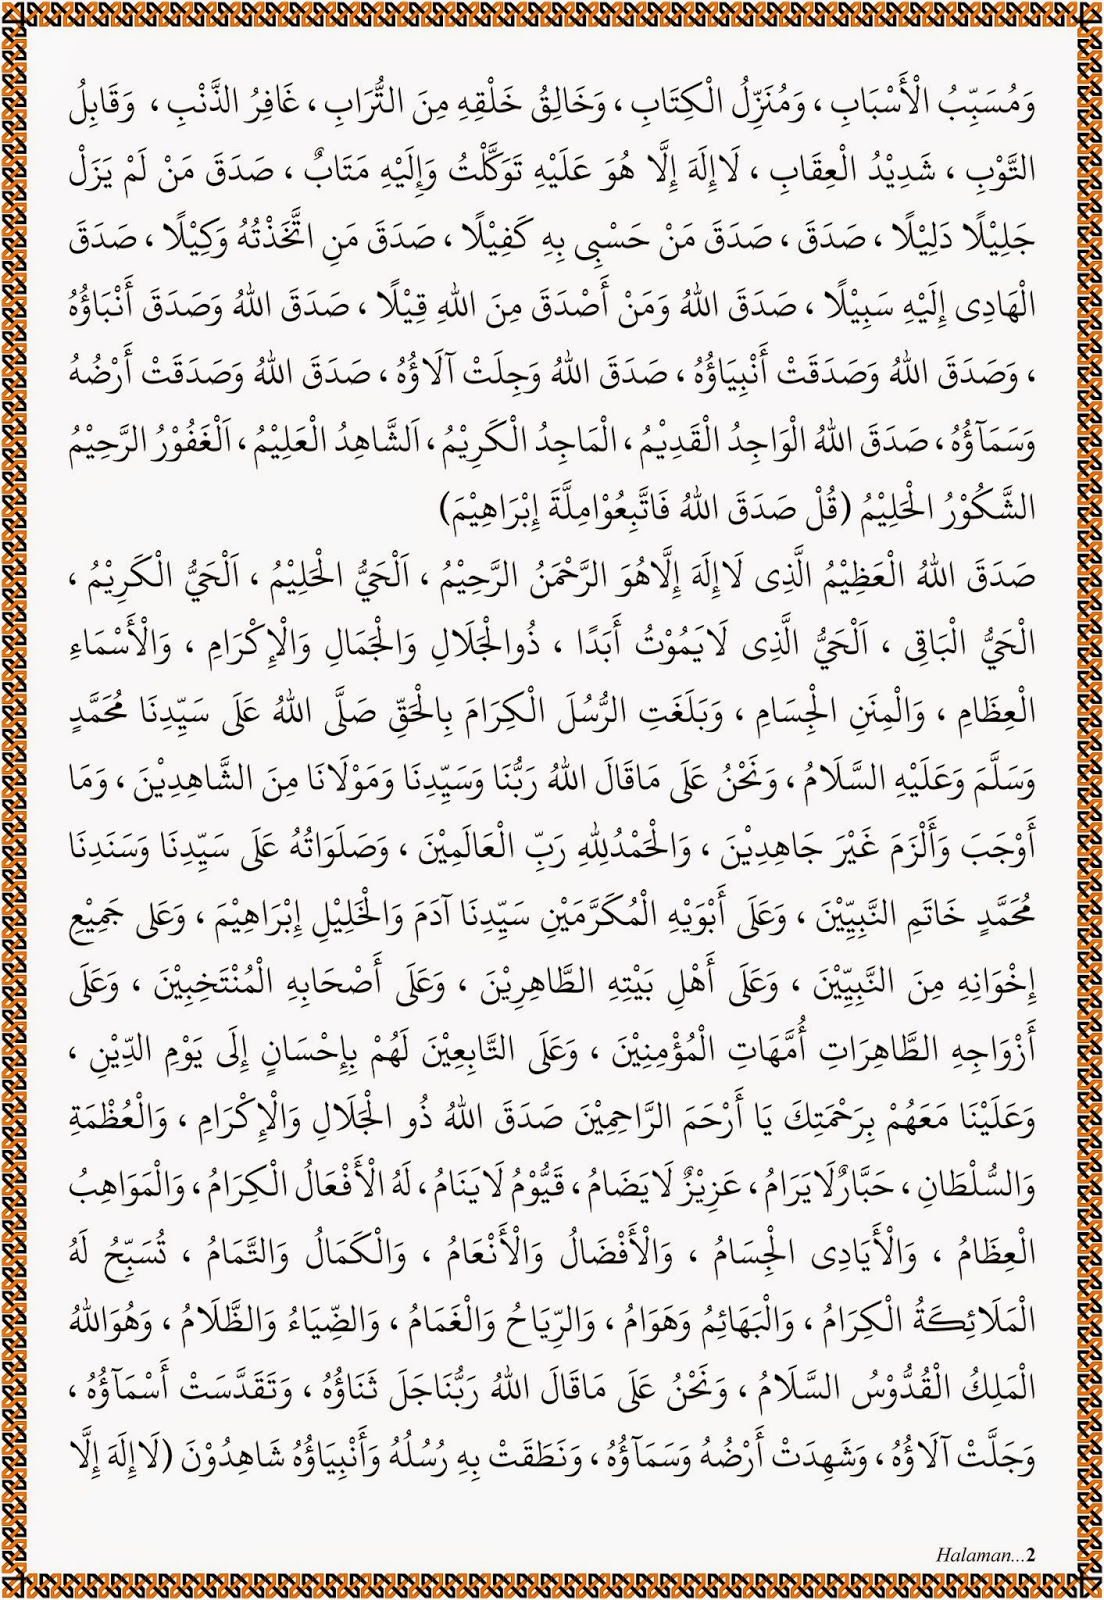 وَمُسَبِّبُ الْأَسْبَابِ ، وَمُنَزِّلُ الْكِتَابِ ، وَخَالِقُ خَلْقِهِ مِنَ التُّرَابِ ، غَافِرُ الذَّنْبِ ، وَقَابِلُ
التَّوْبِ ، شَدِيْدُ الْعِقَابِ ، لَاإِلَهَ إِلَّا هُوَ عَلَيْهِ تَوَكَّلْتُ وَإِلَيْهِ مَتَابٌ ، صَدَقَ مَنْ لَمْ يَزَلْ
جَلِيْلًا دَلِيْلًا ، صَدَقَ ، صَدَقَ مَنْ حَسْبِى بِهِ كَفِيْلًا ، صَدَقَ مَنِ اتَّخَذْتُهُ وَكِيْلًا ، صَدَقَ
الْهَادِى إِلَيْهِ سَبِيْلًا ، صَدَقَ اللهُ وَمَنْ أَصْدَقَ مِنَ اللهِ قِيْلًا ، صَدَقَ اللهُ وَصَدَقَ أَنْبَاؤُهُ
، وَصَدَقَ اللهُ وَصَدَقَتْ أَنْبِيَاؤُهُ ، صَدَقَ اللهُ وَجِلَتْ آلَاؤُهُ ، صَدَقَ اللهُ وَصَدَقَتْ أَرْضُهُ
وَسَمَآؤُهُ ، صَدَقَ اللهُ الْوَاجِدُ الْقَدِيْمُ ، الْمَاجِدُ الْكَرِيْمُ ، اَلشَّاهِدُ الْعَلِيْمُ ، اَلْغَفُوْرُ الرَّحِيْمُ
الشَّكُوْرُ الْحَلِيْمُ (قُلْ صَدَقَ اللهُ فَاتَّبِعُوْامِلَّةَ إِبْرَاهِيْمَ)
صَدَقَ اللهُ الْعَظِيْمُ الَّذِى لَاإِلَهَ إِلَّاهُوَ الرَّحْمَنُ الرَّحِيْمُ ، اَلْحَيُّ الْحَلِيْمُ ، اَلْحَيُّ الْكَرِيْمُ ،
الْحَيُّ الْبَاقِى ، اَلْحَيُّ الَّذِى لَايَمُوْتُ أَبَدًا ، ذُوالْجَلَالِ وَالْجَمَالِ وَالْإِكْرَامِ ، وَالْأَسْمَاءِ
الْعِظَامِ ، وَالْمِنَنِ الْجِسَامِ ، وَبَلَغَتِ الرُّسُلَ الْكِرَامَ بِالْحَقِّ صَلَّى اللهُ عَلَى سَيِّدِنَا مُحَمَّدٍ
وَسَلَّمَ وَعَلَيْهِ السَّلَامُ ، وَنَحْنُ عَلَى مَاقَالَ اللهُ رَبُّنَا وَسَيِّدِنَا وَمَوْلَانَا مِنَ الشَّاهِدِيْنَ ، وَمَا
أَوْجَبَ وَأَلْزَمَ غَيْرَ جَاهِدِيْنَ ، وَالْحَمْدُلِلهِ رَبِّ الْعَالَمِيْنَ ، وَصَلَوَاتُهُ عَلَى سَيِّدِنَا وَسَنَدِنَا
مُحَمَّدٍ خَاتَمِ النَّبِيِّيْنَ ، وَعَلَى أَبْوَيْهِ الْمُكَرَّمَيْنِ سَيِّدِنَا آدَمَ وَالْخَلِيْلِ إِبْرَاهِيْمَ ، وَعَلى جَمِيْعِ
إِخْوَانِهِ مِنَ النَّبِيِّيْنَ ، وَعَلَى أَهْلِ بَيْتِهِ الطَّاهِرِيْنَ ، وَعَلَى أَصْحَابِهِ الْمُنْتَخِبِيْنَ ، وَعَلَى
أَزْوَاجِهِ الطَّاهِرَاتِ أُمَّهَاتِ الْمُؤْمِنِيْنَ ، وَعَلَى التَّابِعِيْنَ لَهُمْ بِإِحْسَانٍ إِلَى يَوْمِ الدِّيْنِ ،
وَعَلَيْنَا مَعَهُمْ بِرَحْمَتِكَ يَا أَرْحَمَ الرَّاحِمِيْنَ صَدَقَ اللهُ ذُو الْجَلَالِ وَالْإِكْرَامِ ، وَالْعُظْمَةِ
وَالسُّلْطَانِ ، حَبَّارٌلَايَرَامُ ، عَزِيْزٌ لَايَضَامُ ، قَيُّوْمُ لَايَنَامُ ، لَهُ الْأَفْعَالُ الْكِرَامُ ، وَالْمَوَاهِبُ
الْعِظَامُ ، وَالْأَيَادِى الْجِسَامُ ، وَالْأَفْضَالُ وَالْأَنْعَامُ ، وَالْكَمَالُ وَالتَّمَامُ ، تُسَبِّحُ لَهُ
الْمَلَائِكَةُ الْكِرَامُ ، وَالْبَهَائِمُ وَهَوَامُ ، وَالرِّيَاحُ وَالْغَمَامُ ، وَالضِّيَاءُ وَالظَّلَامُ ، وَهُوَاللهُ
الْمَلِكُ الْقُدُّوْسُ السَّلَامُ ، وَنَحْنُ عَلَى مَاقَالَ اللهُ رَبُّنَاجَلَ ثَنَاؤُهُ ، وَتَقَدَّسَتْ أَسْمَآؤُهُ ،
وَجَلَّتْ آلَاؤُهُ ، وَشَهِدَتْ أَرْضُهُ وَسَمَآؤُهُ ، وَنَطَقَتْ بِهِ رُسُلُهُ وَأَنْبِيَاؤُهُ شَاهِدُوْنَ (لَاإِلَهَ إِلَّا
Halaman...2